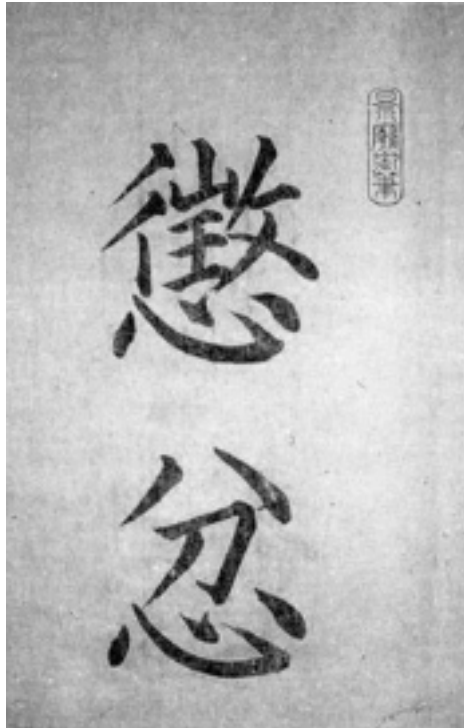 景廟御筆
懲忿